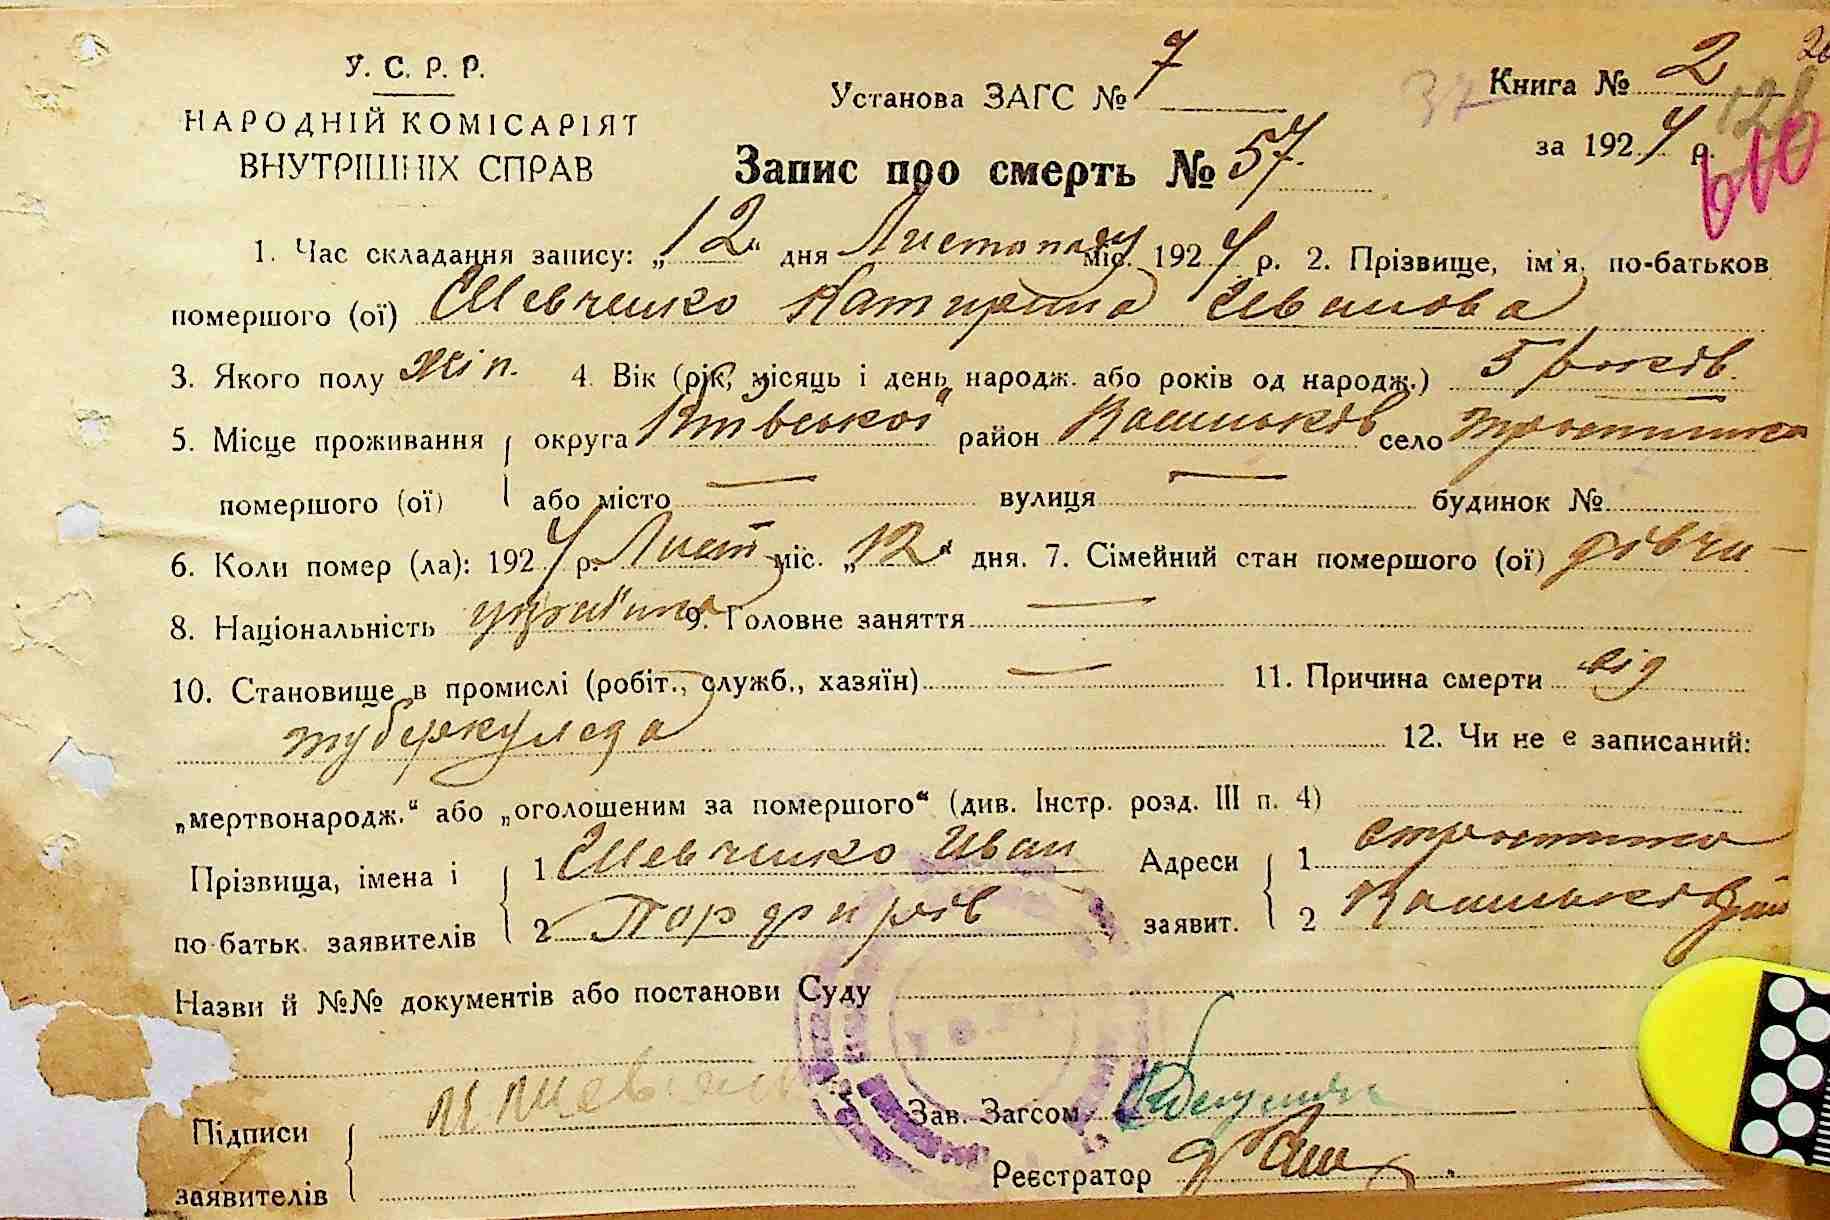 У. С. Р. Р.
НАРОДНІЙ КОМІСАРІЯТ
ВНУТРІШНІХ СПРАВ
Установа ЗАГС № 7
Книга № 2
за 1924 р.
Запис про смерть № 57.
1. Час складання запису: „12“ дня Листопаду міс. 1924 р. 2. Прізвище, ім'я, по-батьков
помершого (ої) Шевченко Катирина Иванова
3. Якого полу жін. 4. Вік (рік, місяць і день народж. або років од народж.) 5 років.
5. Місце проживання округа Київської район Кашиьків село Тростинка
помершого (ої) або місто — вулиця — будинок №
6. Коли помер (ла): 1924 р. Лист міс. „12“ дня. 7. Сімейний стан помершого (ої) дівчи-
8. Національність україн 9. Головне заняття —
10. Становище в промислі (робіт., служб., хазяїн) — 11. Причина смерти від
туберкульоза 12. Чи не є записаний:
„мертвонародж.“ або „оголошеним за помершого“ (див. Інстр. розд. III п. 4)
Прізвища, імена і 1 Шевченко Иван Адреси 1 с Тростинка
по-батьк. заявителів 2 Порфирів заявит. 2
Назви й №№ документів або постанови Суду
Підписи Зав. Загсом
заявителів Реєстратор